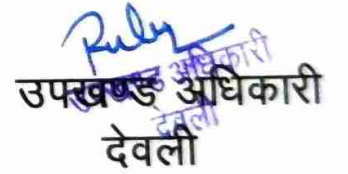 Ruby
उपखण्ड अधिकारी
देवली
उपखण्ड अधिकारी
देवली